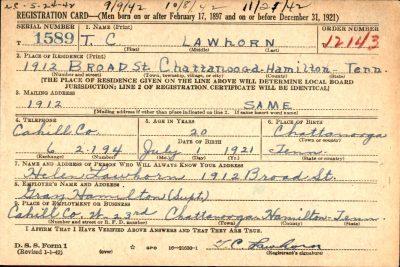 45-5-24-44 9/9/42 10/8/42 11/21/42
REGISTRATION CARD—(Men born on or after February 17, 1897 and on or before December 31, 1921)
SERIAL NUMBER 1. NAME (Print) ORDER NUMBER
T 1589 T. C. LAWHORN 12143
(First) (Middle) (Last)
2. PLACE OF RESIDENCE (Print)
1912 BROAD St. Chattanooga-Hamilton-Tenn.
(Number and street) (Town, township, village, or city) (County) (State)
[THE PLACE OF RESIDENCE GIVEN ON THE LINE ABOVE WILL DETERMINE LOCAL BOARD
JURISDICTION; LINE 2 OF REGISTRATION CERTIFICATE WILL BE IDENTICAL]
3. MAILING ADDRESS
1912 SAME
[Mailing address if other than place indicated on line 2. If same insert word same]
4. TELEPHONE 5. AGE IN YEARS 6. PLACE OF BIRTH
Cahill Co. 20 Chattanooga
DATE OF BIRTH (Town or county)
6 2-194 July 1 1921 Tenn.
(Exchange) (Number) (Mo.) (Day) (Yr.) (State or country)
7. NAME AND ADDRESS OF PERSON WHO WILL ALWAYS KNOW YOUR ADDRESS
Helen Lawhorn 1912 Broad St.
8. EMPLOYER'S NAME AND ADDRESS
Gray Hamilton (Supt)
9. PLACE OF EMPLOYMENT OR BUSINESS
Cahill Co. W. 23rd Chattanooga Hamilton-Tenn.
(Number and street or R. F. D. number) (Town) (County) (State)
I AFFIRM THAT I HAVE VERIFIED ABOVE ANSWERS AND THAT THEY ARE TRUE.
D. S. S. Form 1 GPO 16—21630-1 T C Lawhorn
(Revised 1-1-42) (Registrant's signature)